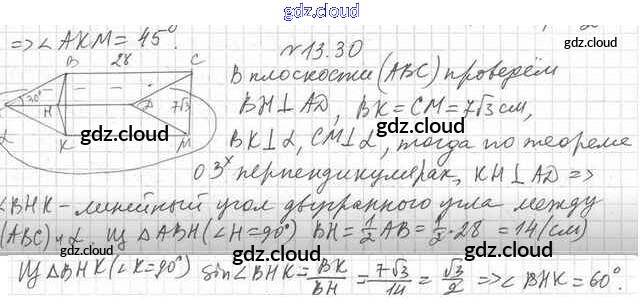 gdz.cloud
=> ∠AKM = 45°.
N 13.30
B 28 C
30° H D 7√3
α K M
В плоскости (ABC) проведём
BH ⊥ AD, BK = CM = 7√3 см,
BK ⊥ α, CM ⊥ α, тогда по теореме
о 3ˣ перпендикулярах, KH ⊥ AD =>
∠BHK - линейный угол двугранного угла между
(ABC) и α. Из △ABH (∠H = 90°) BH = 1/2 AB = 1/2 · 28 = 14 (см)
Из △BHK (∠K = 90°) sin∠BHK = BK/BH = 7√3/14 = √3/2 => ∠BHK = 60°.
gdz.cloud
gdz.cloud
gdz.cloud
gdz.cloud
gdz.cloud
gdz.cloud
gdz.cloud
gdz.cloud